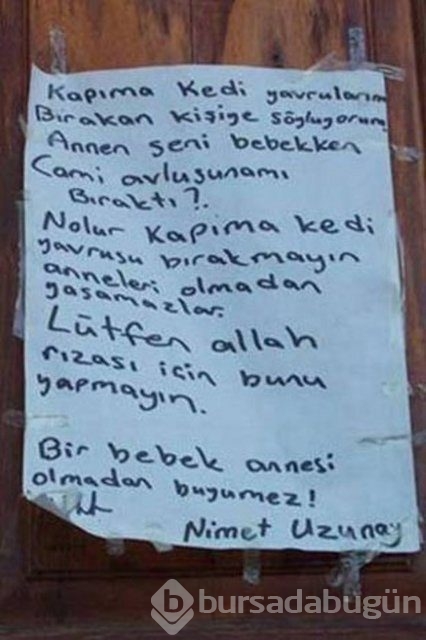 Kapıma Kedi yavrularını
Bırakan kişiye söylüyorum
Annen seni bebekken
Cami avlusunamı
Bıraktı?.
Nolur Kapıma Kedi
yavrusu bırakmayın
anneleri olmadan
yaşamazlar.
Lütfen allah
rızası için bunu
yapmayın.
Bir bebek annesi
olmadan buyumez!
Nimet Uzunay
b bursadabugün